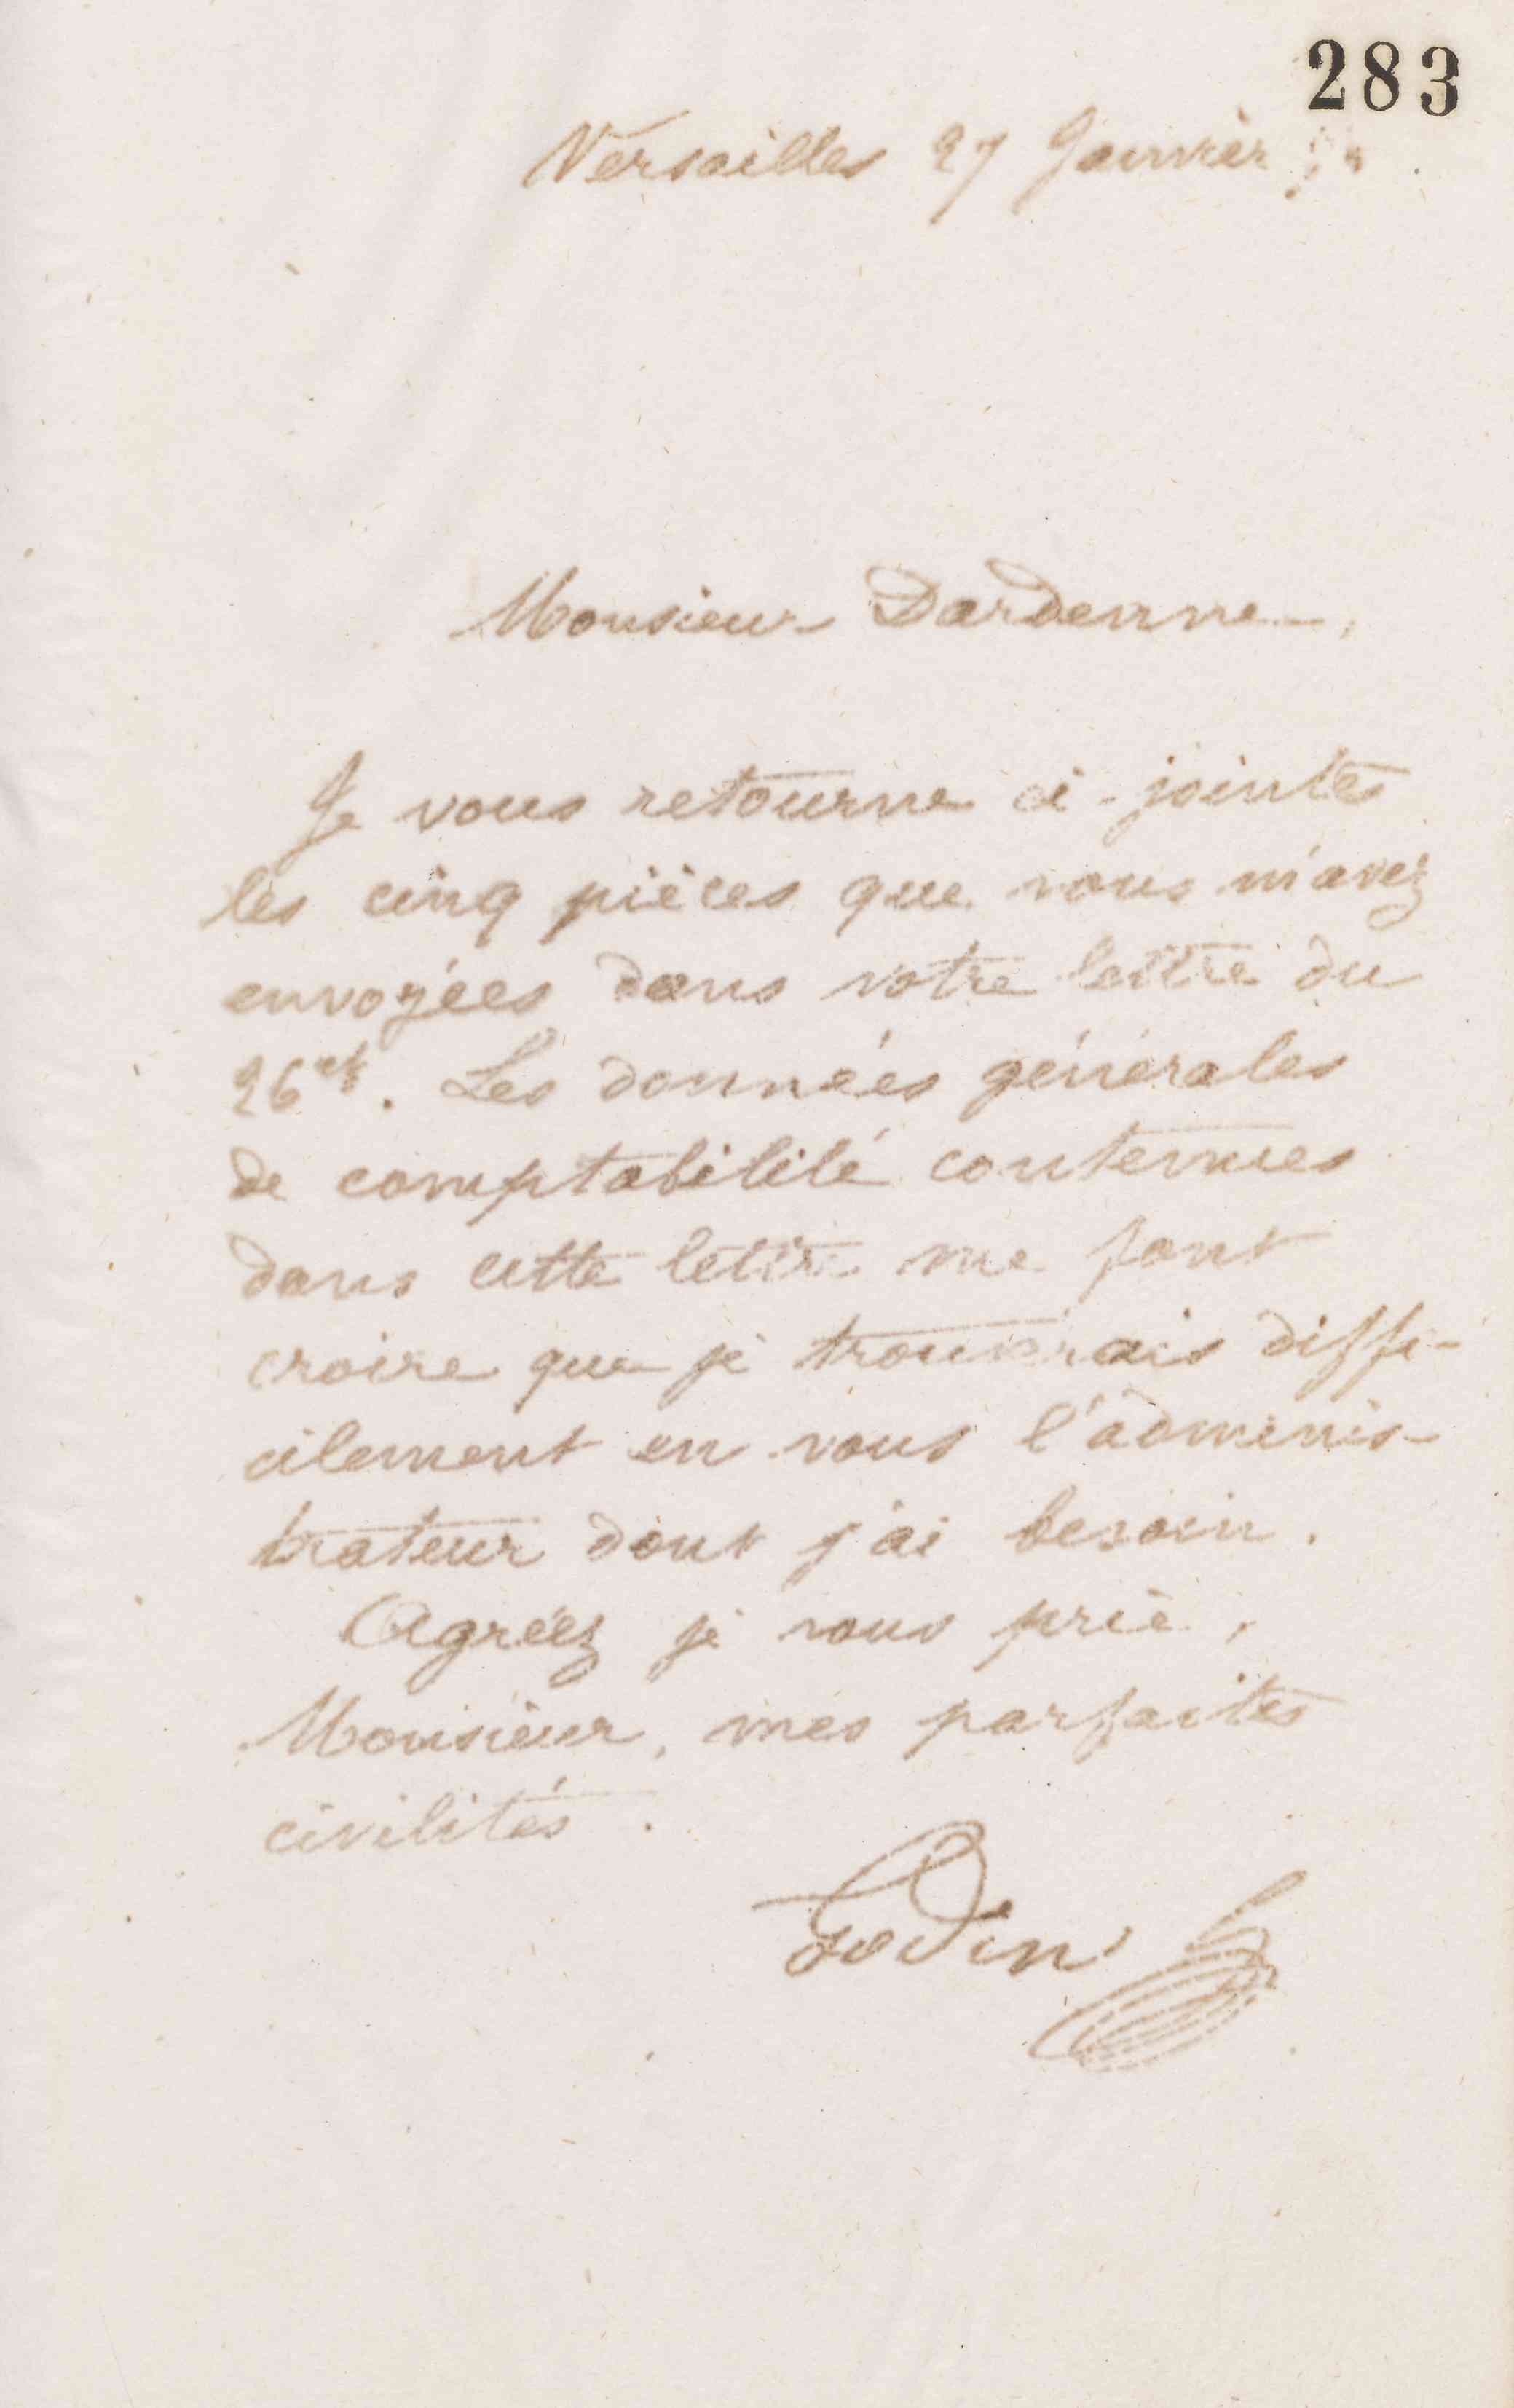 283
Versailles 27 Janvier
Monsieur Dardenne,
Je vous retourne ci-jointes
les cinq pièces que vous m'avez
envoyées dans votre lettre du
26 ct. Les données générales
de comptabilité contenues
dans cette lettre me font
croire que je trouverais diffi-
cilement en vous l'adminis-
trateur dont j'ai besoin.
Agréez je vous prie,
Monsieur, mes parfaites
civilités.
Godin